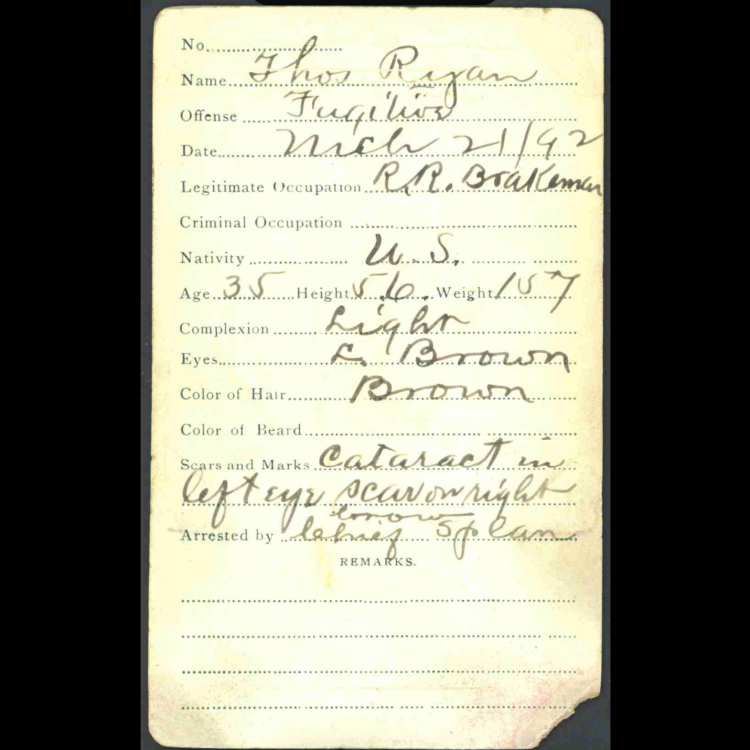 No.
Name Thos Ryan
Offense Fugitive
Date Mch 21/92
Legitimate Occupation R.R. Brakeman
Criminal Occupation
Nativity U.S.
Age 35 Height 5.6. Weight 157
Complexion Light
Eyes L. Brown
Color of Hair Brown
Color of Beard
Scars and Marks Cataract in
left eye scar on right
brow
Arrested by Chief Splan
REMARKS.